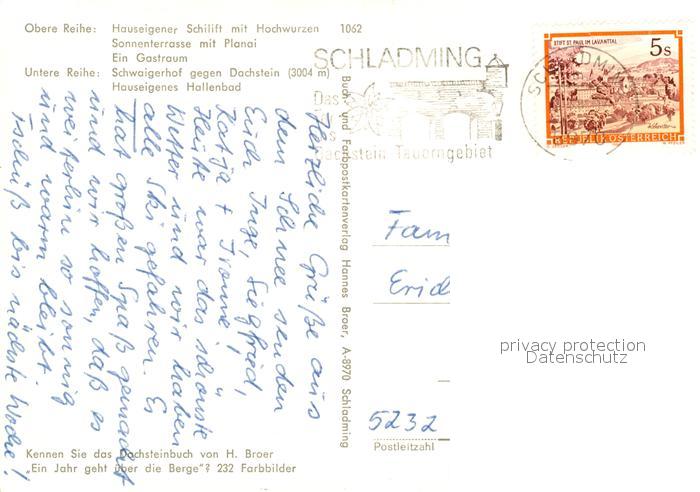 Obere Reihe: Hauseigener Schilift mit Hochwurzen 1062
Sonnenterrasse mit Planai
Ein Gastraum
Untere Reihe: Schwaigerhof gegen Dachstein (3004 m)
Hauseigenes Hallenbad
SCHLADMING
Das
Dachstein Tauerngebiet
STIFT ST. PAUL IM LAVANTTAL
5 S
REPUBLIK ÖSTERREICH
SCHLADMING
Herzliche Grüße aus
dem Schnee senden
Euch Inge, Siegfried,
Katja + Ivonne!
Heute war das schönste
Wetter und wir haben
alle Ski gefahren. Es
hat großen Spaß gemacht
und wir hoffen, daß es
weiterhin so sonnig
und warm bleibt.
Tschüß bis nächste Woche!
Buch- und Farbpostkartenverlag Hannes Broer, A-8970 Schladming
Fam
Erid
privacy protection
Datenschutz
5232
Postleitzahl
Kennen Sie das Dachsteinbuch von H. Broer
„Ein Jahr geht über die Berge"? 232 Farbbilder